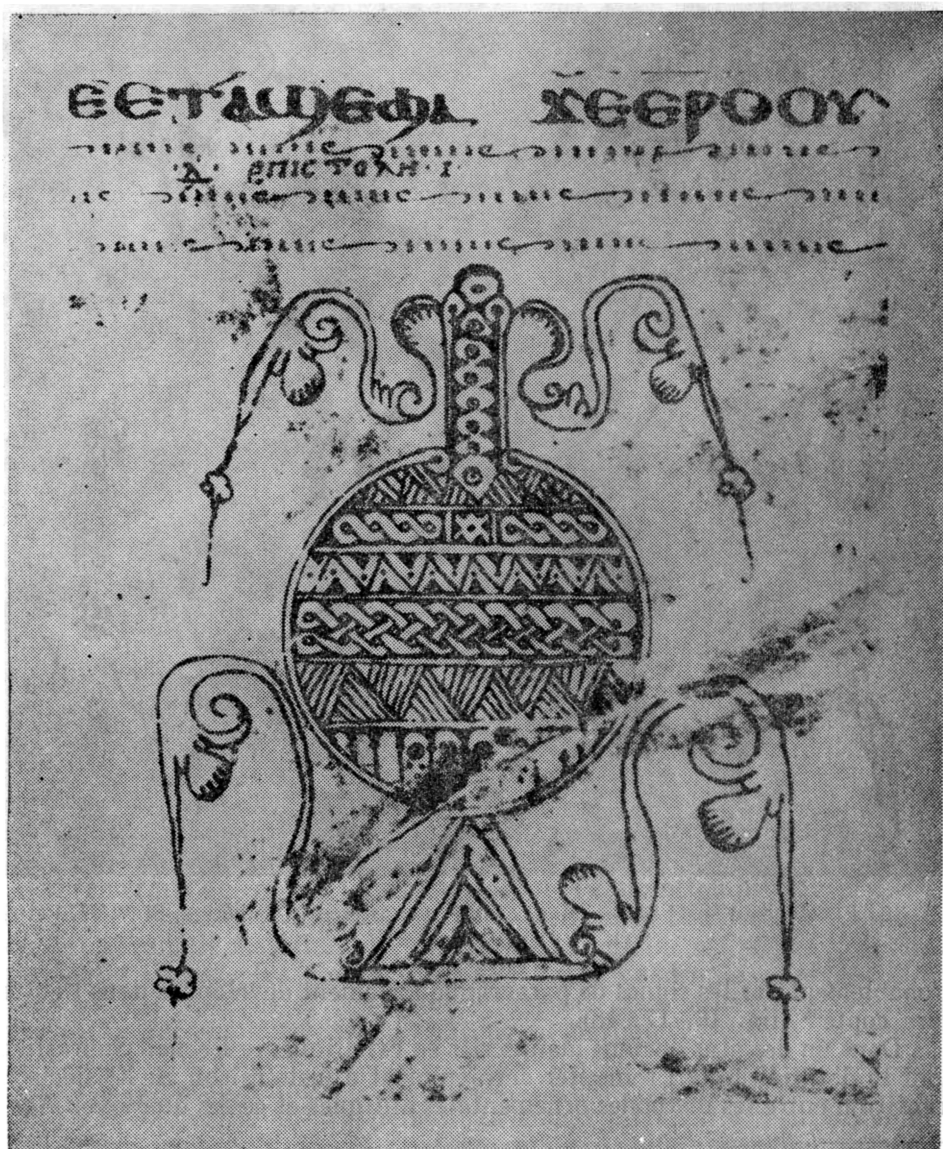 ⲈⲈⲦⲀϢⲈϤⲀ ϪⲈⲈⲢⲞⲞⲨ
·Ⲇ· ⲈⲠⲒⲤⲦⲞⲖⲎ·Ⲓ